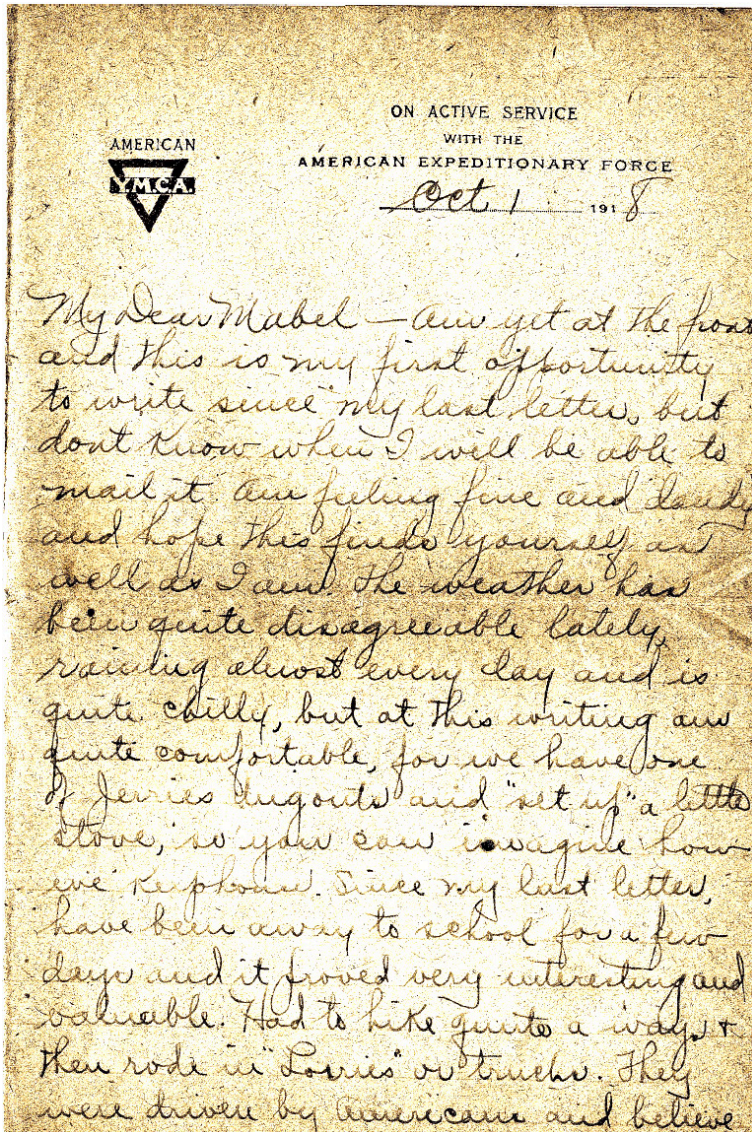 ON ACTIVE SERVICE
WITH THE
AMERICAN EXPEDITIONARY FORCE
AMERICAN
Y.M.C.A.
Oct 1 1918
My Dear Mabel — Am yet at the front
and this is my first opportunity
to write since my last letter, but
dont know when I will be able to
mail it. Am feeling fine and dandy
and hope this finds yourself as
well as I am. The weather has
been quite disagreeable lately,
raining almost every day and is
quite chilly, but at this writing am
quite comfortable, for we have one
of Jerries dugouts and "set up" a little
stove, so you can imagine how
we keephouse. Since my last letter,
have been away to school for a few
days and it proved very interesting and
valuable. Had to hike quite a ways &
then rode in "Lorries" or trucks. They
were driven by Americans and believe